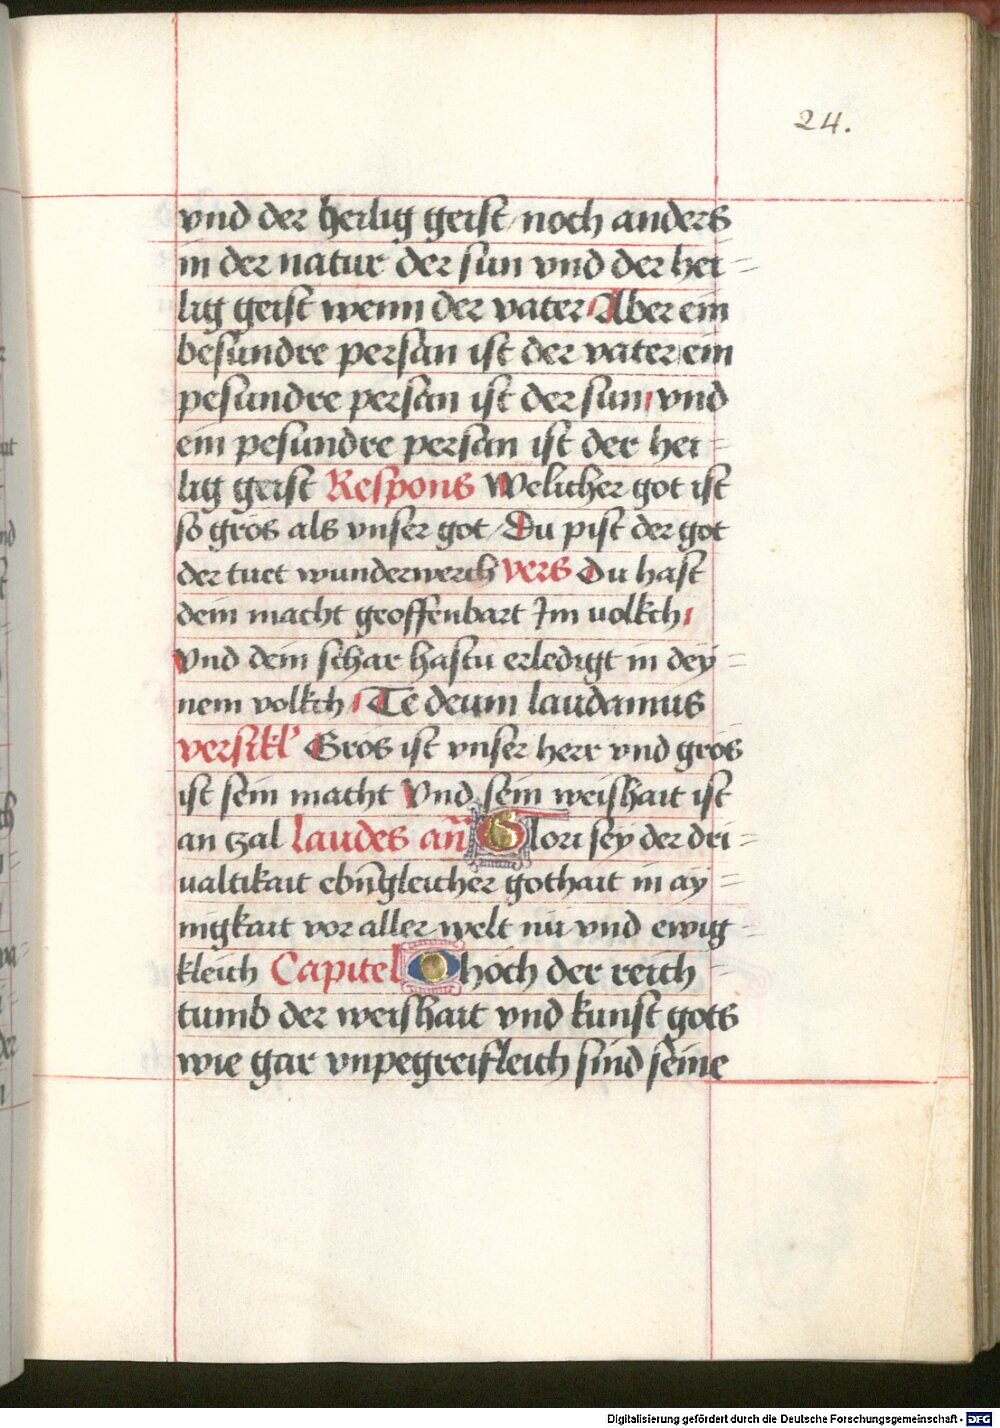 24.
vnd der heilig geist / noch anders
in der natur der sun vnd der hei=
lig geist wenn der vater Aber ein
besundre person ist der vater ein
pesundre person ist der sun vnd
ein pesundre person ist der hei=
lig geist Respons Welicher got ist
so gros als vnser got / Du pist der got
der tuet wunderwerch vers Du hast
dein macht geoffenbart Im uolkch
Vnd dein schar hastu erledigt in dey=
nem volkch Te deum laudamus
versikl' Gros ist vnser herr vnd gros
ist sein macht Vnd sein weishait ist
an tzal laudes an̄ Glori sey der dri=
ualtikait ebn̄gleicher gothait in ay=
nigkait vor aller welt nu vnd ewig=
kleich Capitel O hoch der reich=
tumb der weishait vnd kunst gots
wie gar vnpegreifleich sind seine
Digitalisierung gefördert durch die Deutsche Forschungsgemeinschaft - DFG